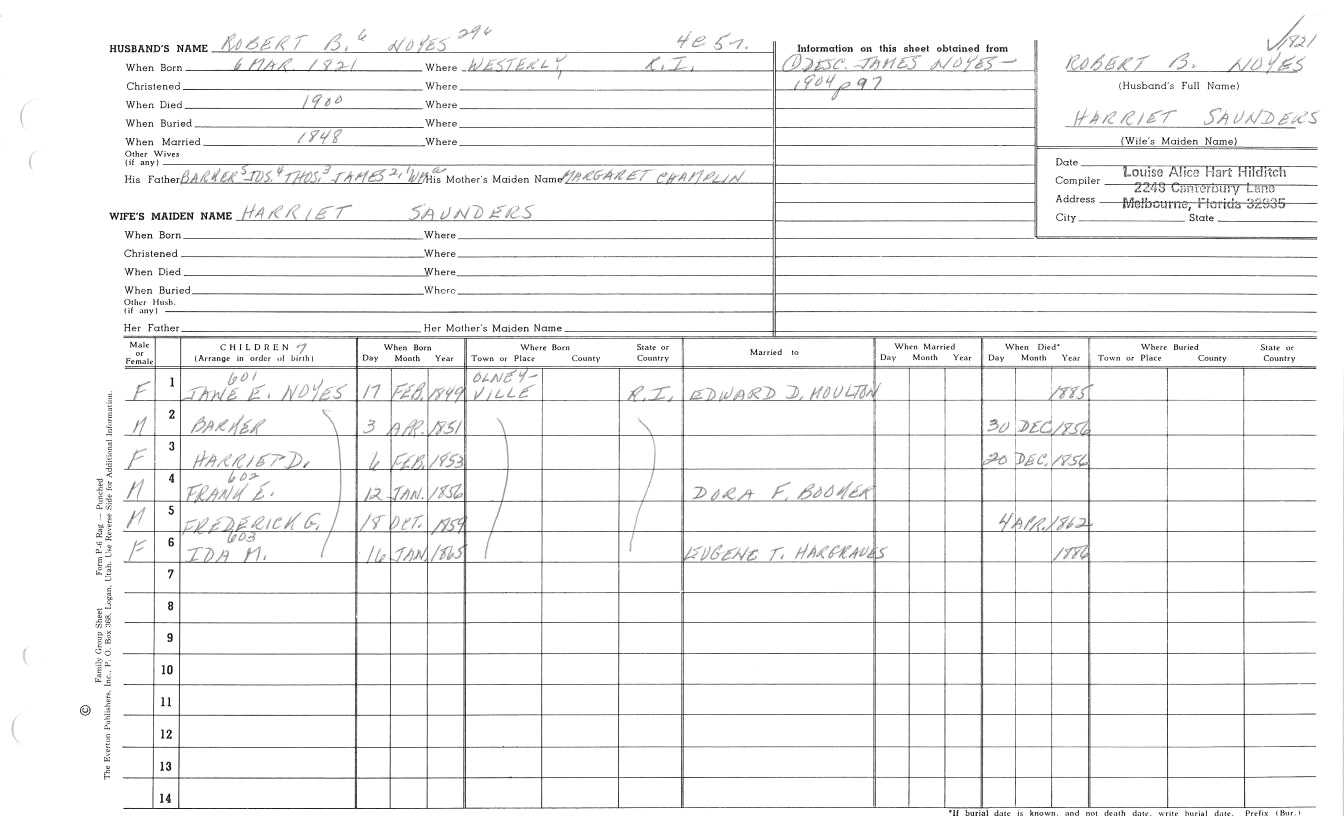 HUSBAND'S NAME ROBERT B.6 NOYES 296 4 C 5 7.
When Born 6 MAR. 1821 Where WESTERLY, R.I.
Christened Where
When Died 1900 Where
When Buried Where
When Married 1848 Where
Other Wives
(if any)
His Father BARKER5 JOS.4 THOS.3 JAMES2,1 WMa His Mother's Maiden Name MARGARET CHAMPLIN
WIFE'S MAIDEN NAME HARRIET SAUNDERS
When Born Where
Christened Where
When Died Where
When Buried Where
Other Husb.
(if any)
Her Father Her Mother's Maiden Name
Information on this sheet obtained from
① DESC. JAMES NOYES –
1904 p 97
√1821
ROBERT B. NOYES
(Husband's Full Name)
HARRIET SAUNDERS
(Wife's Maiden Name)
Date
Compiler Louise Alice Hart Hilditch
2243 Canterbury Lane
Address Melbourne, Florida 32935
City State
Male or Female CHILDREN 7 (Arrange in order of birth) When Born Day Month Year Where Born Town or Place County State or Country Married to When Married Day Month Year When Died* Day Month Year Where Buried Town or Place County State or Country
F 1 601 JANE E. NOYES 17 FEB. 1849 OLNEY-VILLE R.I. EDWARD D. MOULTON 1885
M 2 BARKER 3 APR. 1851 30 DEC 1856
F 3 HARRIET D. 6 FEB. 1853 20 DEC. 1856
M 4 602 FRANK E. 12 JAN. 1856 DORA F. BOOMER
M 5 FREDERICK G. 18 OCT. 1859 4 APR. 1862
F 6 603 IDA M. 16 JAN. 1865 EUGENE T. HARGRAVES 1886
7
8
9
10
11
12
13
14
*If burial date is known, and not death date, write burial date. Prefix (Bur.)
© Family Group Sheet Form P-6 Rag — Punched
The Everton Publishers, Inc., P. O. Box 368, Logan, Utah. Use Reverse Side for Additional Information.